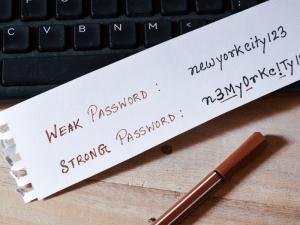 Weak Password : newyorkcity123
Strong Password : n3MyOrKcITy1